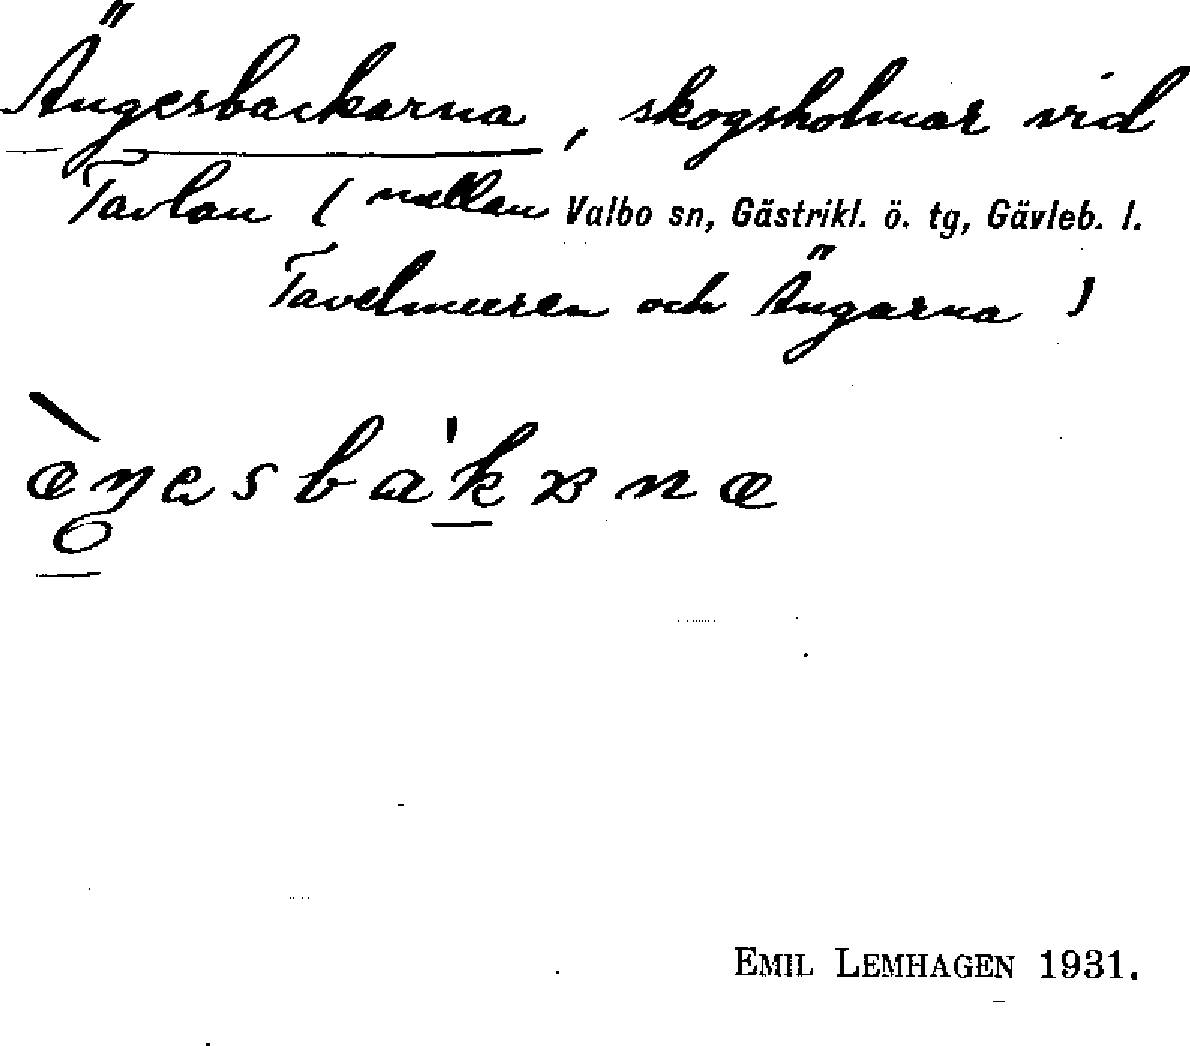 Ängesbackarna, skogsholmar vid
Tavlan (mellan Valbo sn, Gästrikl. ö. tg, Gävleb. l.
Tavelmuren och Ängarna)
EMIL LEMHAGEN 1931.